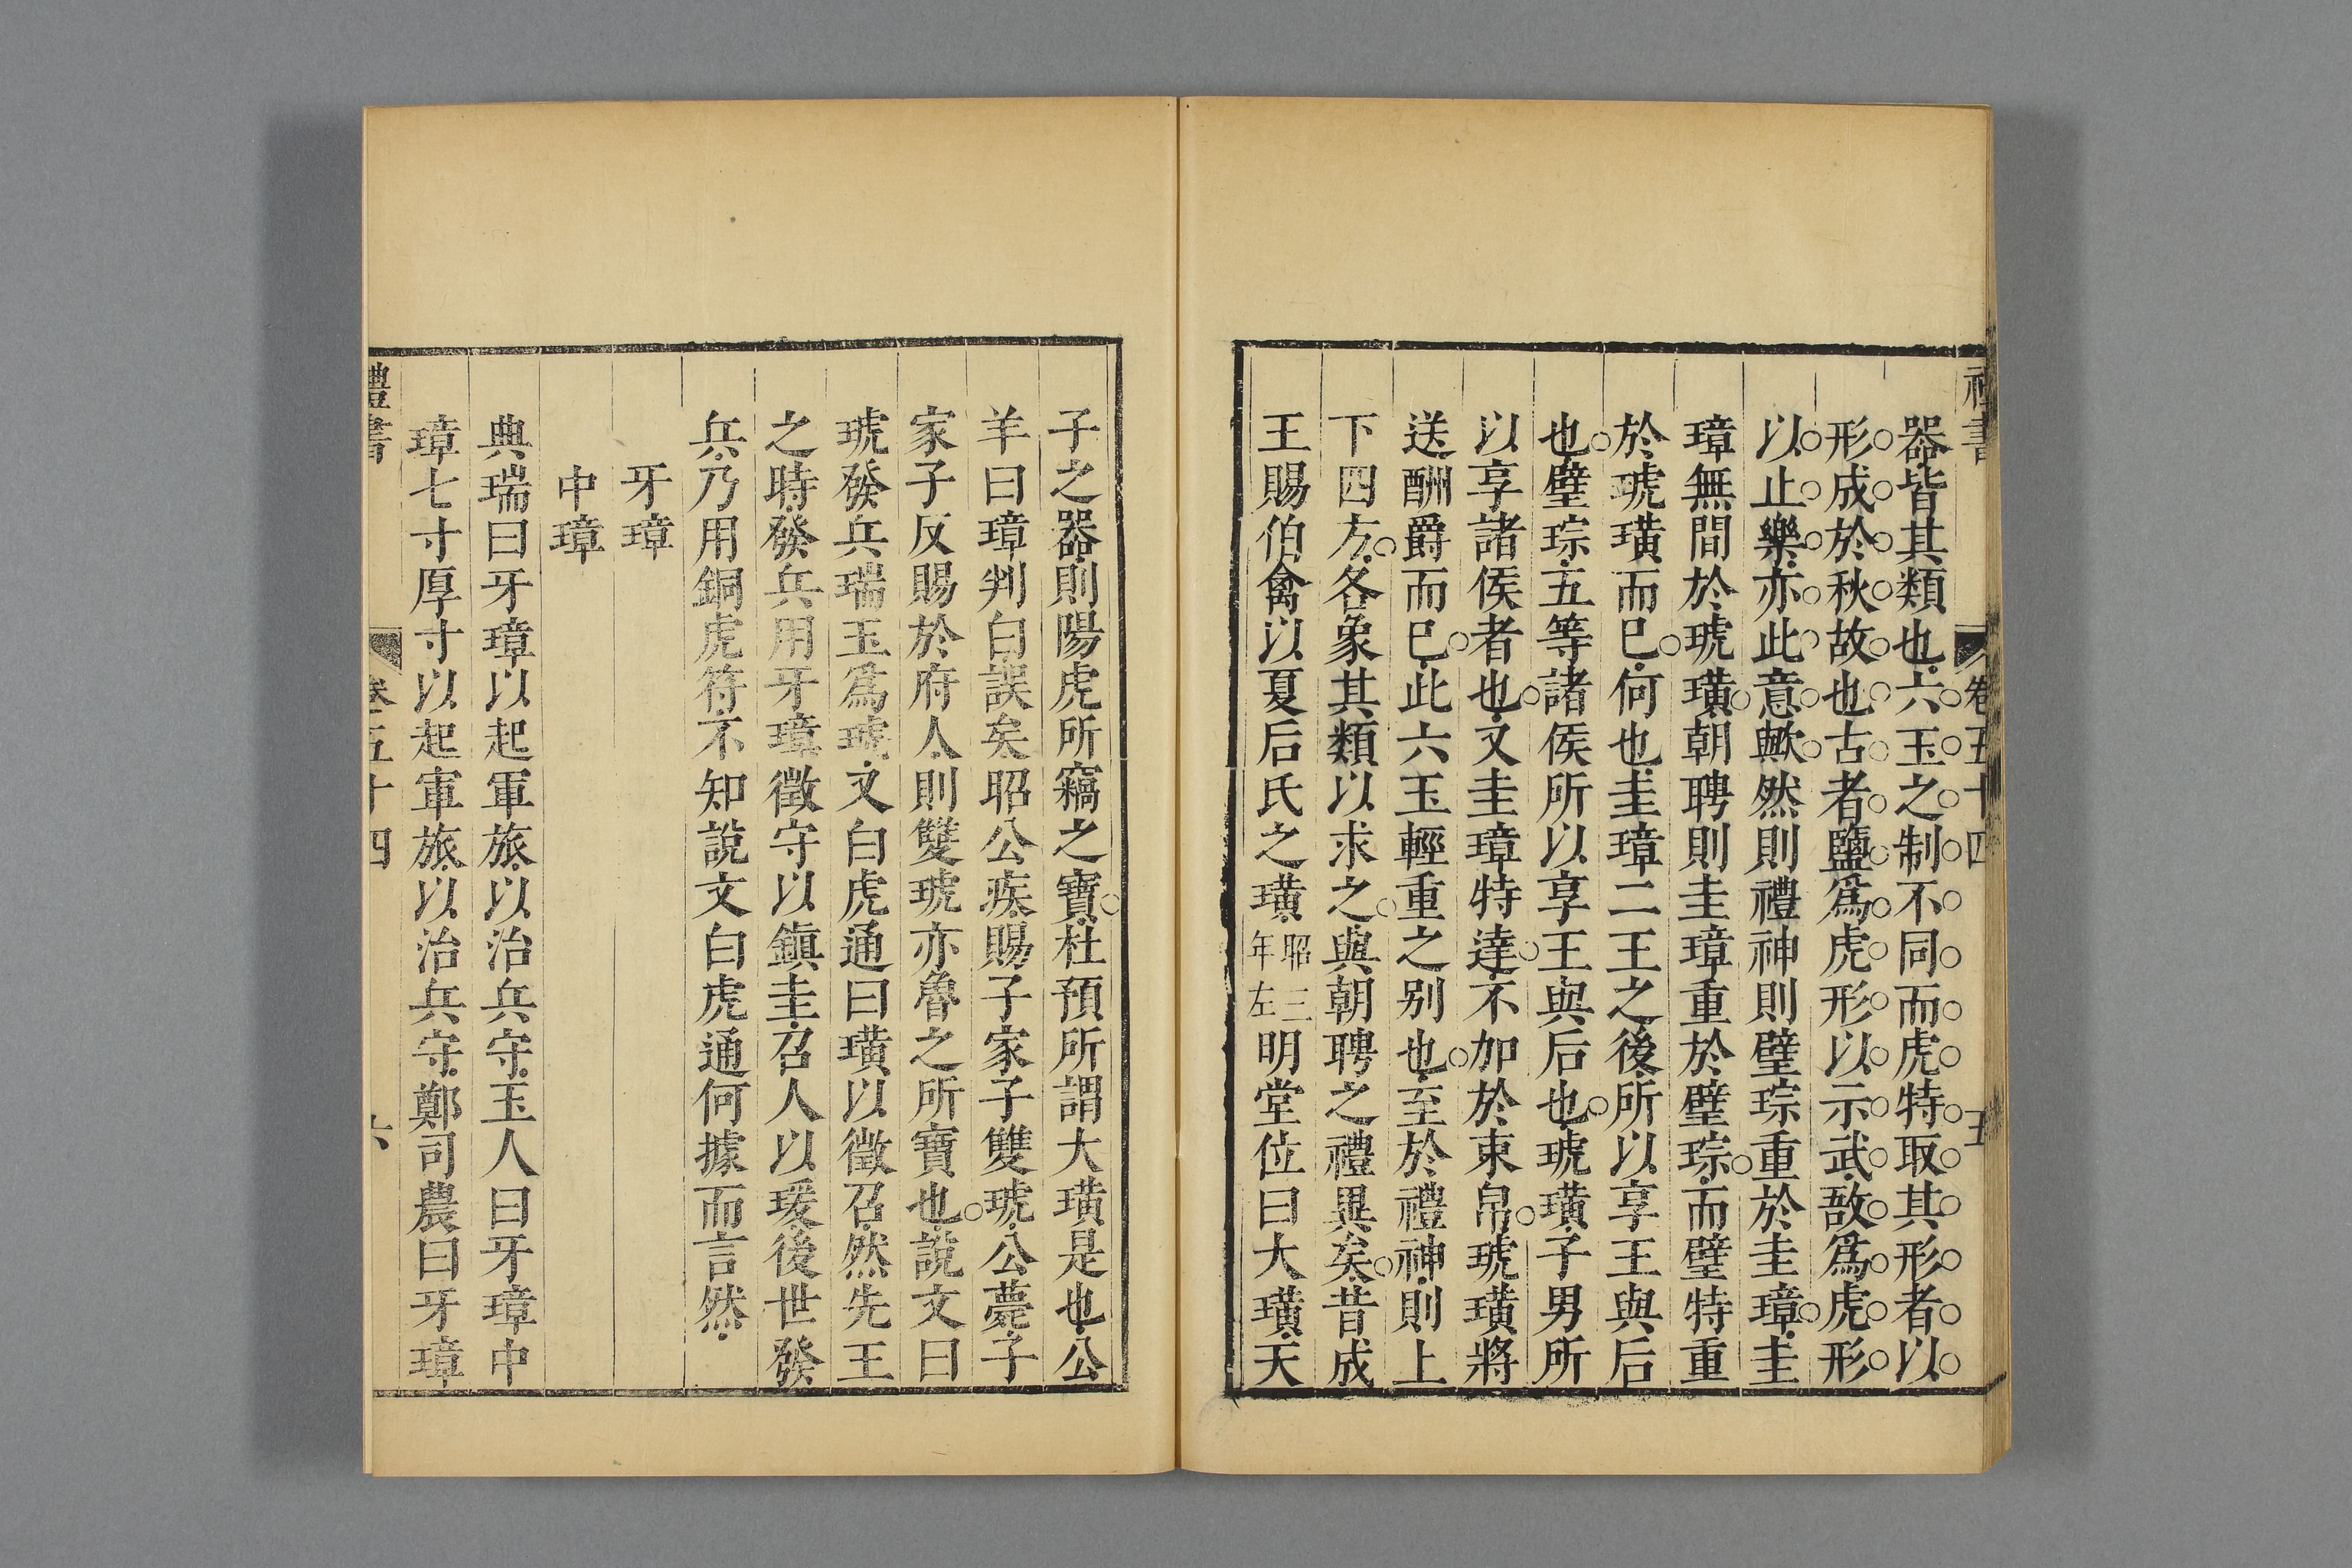 禮書 卷五十四 五
器皆其類也六玉之制不同而虎特取其形者以
形成於秋故也古者鹽爲虎形以示武敔爲虎形
以止樂亦此意歟然則禮神則璧琮重於圭璋圭
璋無間於琥璜朝聘則圭璋重於璧琮而璧特重
於琥璜而已何也圭璋二王之後所以享王與后
也璧琮五等諸侯所以享王與后也琥璜子男所
以享諸侯者也文圭璋特達不加於束帛琥璜將
送酬爵而已此六玉輕重之别也至於禮神則上
下四方各象其類以求之與朝聘之禮異矣昔成
王賜伯禽以夏后氏之璜昭三年左明堂位曰大璜天
子之器則陽虎所竊之寶杜預所謂大璜是也公
羊曰璋判白誤矣昭公疾賜子家子雙琥公薨子
家子反賜於府人則雙琥亦魯之所寶也說文曰
琥發兵瑞玉爲琥文白虎通曰璜以徵召然先王
之時發兵用牙璋徵守以鎭圭召人以瑗後世發
兵乃用銅虎符不知說文白虎通何據而言然
牙璋
中璋
典瑞曰牙璋以起軍旅以治兵守玉人曰牙璋中
璋七寸厚寸以起軍旅以治兵守鄭司農曰牙璋
禮書 卷五十四 六